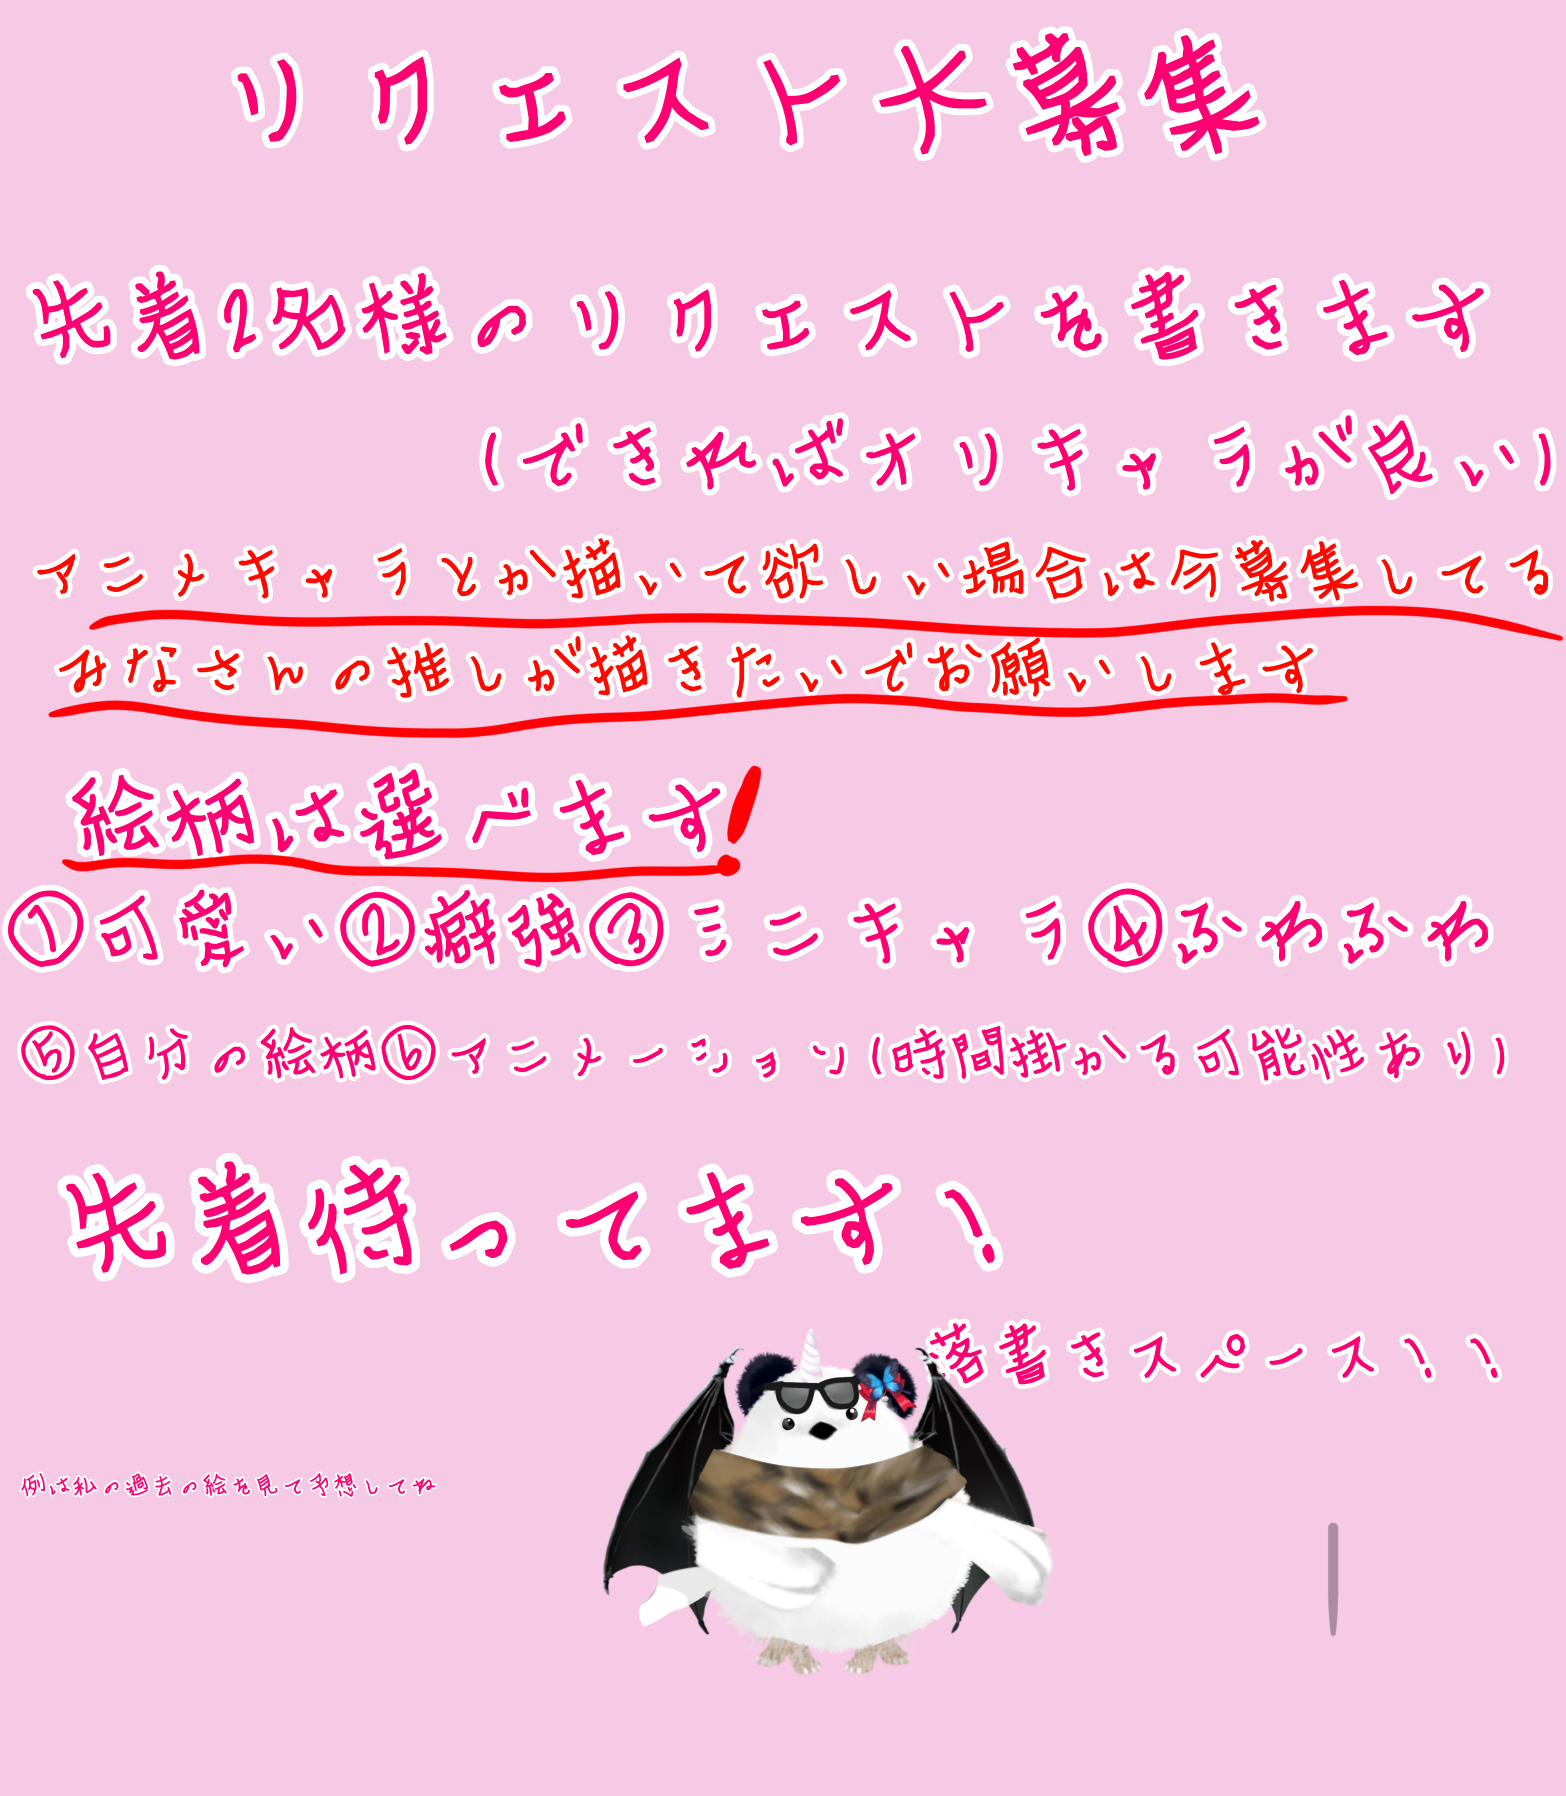 リクエスト大募集
先着2名様のリクエストを書きます
(できればオリキャラが良い)
アニメキャラとか描いて欲しい場合は今募集してる
みなさんの推しが描きたいでお願いします
絵柄は選べます!
①可愛い②癖強③ミニキャラ④ふわふわ
⑤自分の絵柄⑥アニメーション(時間掛かる可能性あり)
先着待ってます!
落書きスペース!!
例は私の過去の絵を見て予想してね